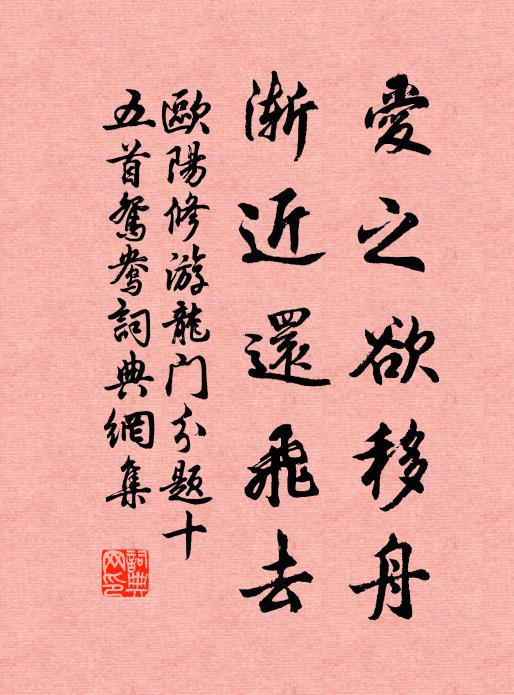 愛之欲移舟
漸近還飛去
歐陽修游龍门分题十
五首鴛鴦詞典網集
詞典
网印